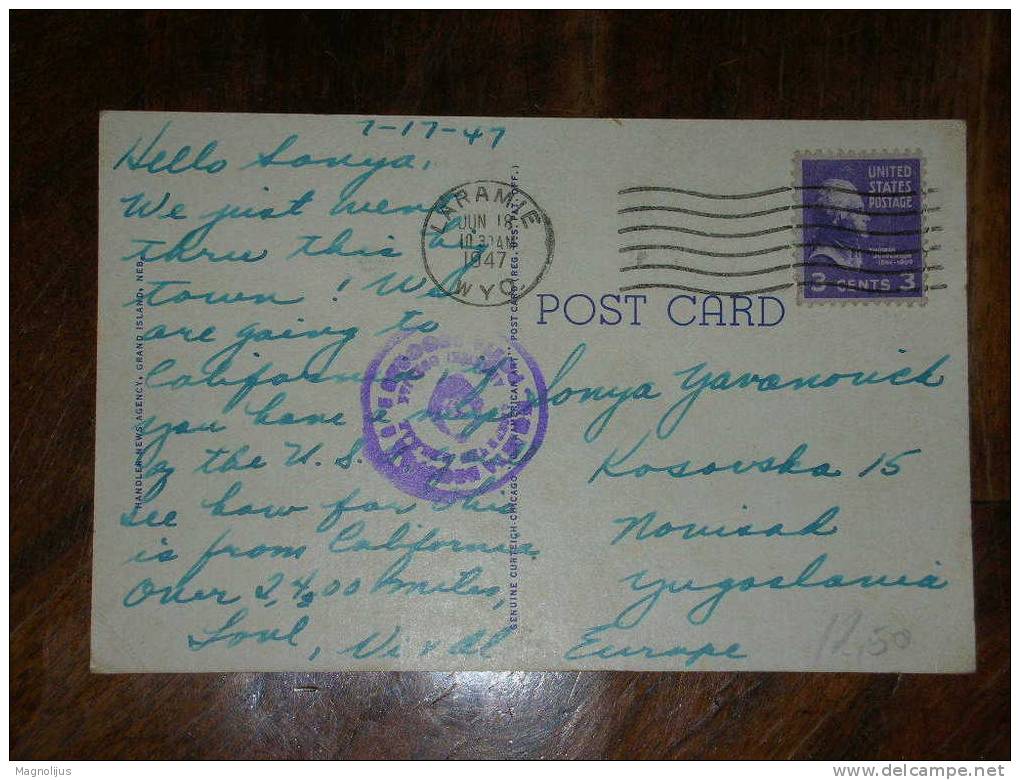 7-17-47
Hello Sonya,
We just went
thru this
town! We
are going to
California. If
you have a map
of the U.S.
see how far this
is from California.
Over 2,400 miles,
Love, Vi & Al
LARAMIE
JUN 18
10 30 AM
1947
WYO.
UNITED
STATES
POSTAGE
3 CENTS 3
POST CARD
Sonya Yavanovich
Kosovska 15
Novisad
Yugoslavia
Europe
12,50
HANDLER NEWS AGENCY, GRAND ISLAND, NEB.
GENUINE CURTEICH-CHICAGO "AMERICAN ART" POST CARD (REG. U.S. PAT. OFF.)
Magnolijus
www.delcampe.net